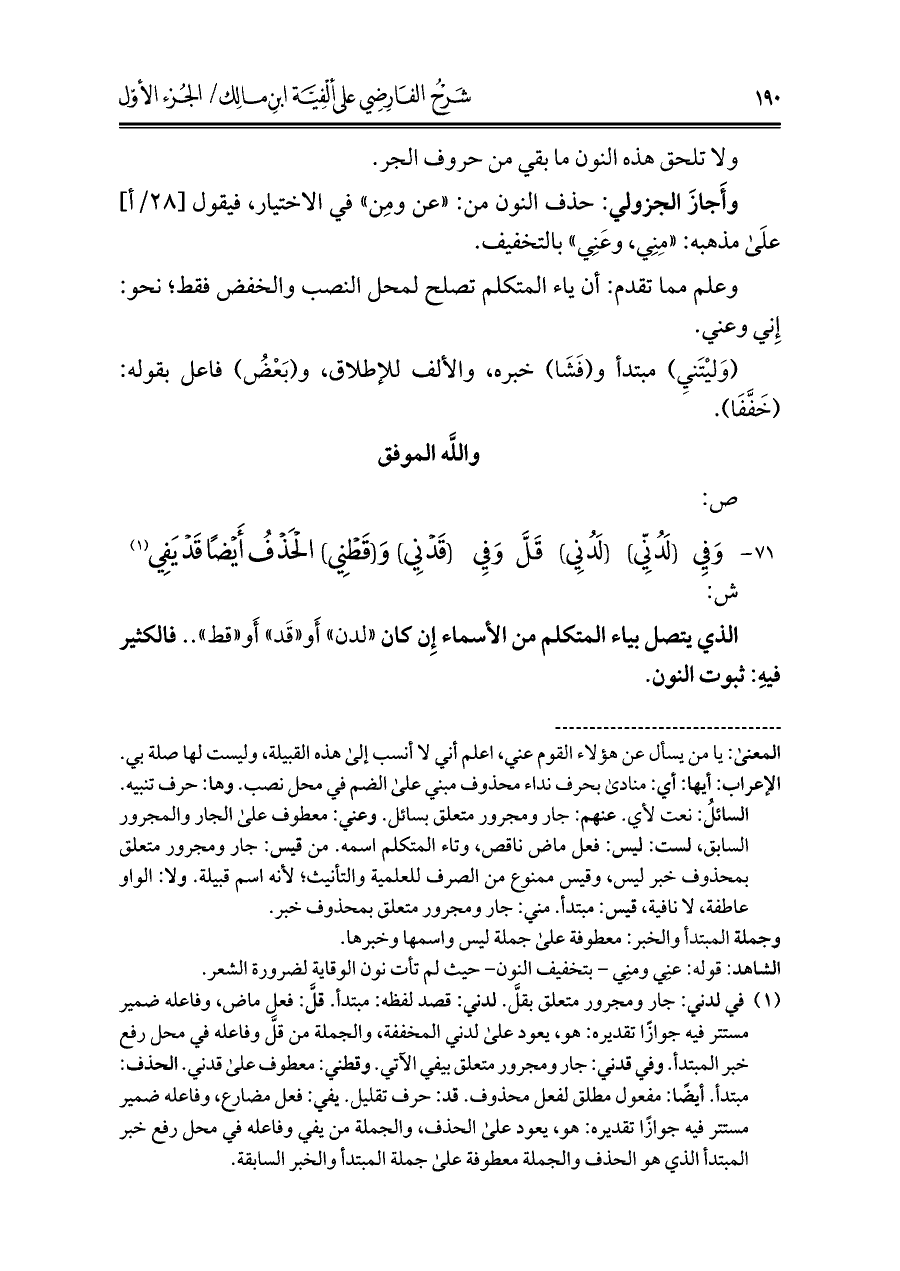 ١٩٠ شرح الفارضي على ألفية ابن مالك/ الجزء الأول
ولا تلحق هذه النون ما بقي من حروف الجر.
وأَجازَ الجزولي: حذف النون من: «عن ومِن» في الاختيار، فيقول [٢٨/ أ]
علَىٰ مذهبه: «مِنِي، وعَنِي» بالتخفيف.
وعلم مما تقدم: أن ياء المتكلم تصلح لمحل النصب والخفض فقط؛ نحو:
إِني وعني.
(وَليْتَنيِ) مبتدأ و(فَشَا) خبره، والألف للإطلاق، و(بَعْضُ) فاعل بقوله:
(خَفَّفَا).
واللَّه الموفق
ص:
٧١- وَفِي (لَدُنِّي) (لَدُنِي) قَلَّ وَفِي (قَدْنِي) وَ(قَطْنِي) الْحَذْفُ أَيْضًا قَدْ يَفِي(١)
ش:
الذي يتصل بياء المتكلم من الأسماء إِن كان «لدن» أَو «قَد» أَو «قط».. فالكثير
فيهِ: ثبوت النون.
المعنىٰ: يا من يسأل عن هؤلاء القوم عني، اعلم أني لا أنسب إلىٰ هذه القبيلة، وليست لها صلة بي.
الإعراب: أيها: أي: منادىٰ بحرف نداء محذوف مبني علىٰ الضم في محل نصب. وها: حرف تنبيه.
السائلُ: نعت لأي. عنهم: جار ومجرور متعلق بسائل. وعني: معطوف علىٰ الجار والمجرور
السابق، لست: ليس: فعل ماض ناقص، وتاء المتكلم اسمه. من قيس: جار ومجرور متعلق
بمحذوف خبر ليس، وقيس ممنوع من الصرف للعلمية والتأنيث؛ لأنه اسم قبيلة. ولا: الواو
عاطفة، لا نافية، قيس: مبتدأ. مني: جار ومجرور متعلق بمحذوف خبر.
وجملة المبتدأ والخبر: معطوفة علىٰ جملة ليس واسمها وخبرها.
الشاهد: قوله: عنِي ومنِي – بتخفيف النون– حيث لم تأت نون الوقاية لضرورة الشعر.
(١) في لدني: جار ومجرور متعلق بقلَّ. لدني: قصد لفظه: مبتدأ. قلَّ: فعل ماض، وفاعله ضمير
مستتر فيه جوازًا تقديره: هو، يعود علىٰ لدني المخففة، والجملة من قلَّ وفاعله في محل رفع
خبر المبتدأ. وفي قدني: جار ومجرور متعلق بيفي الآتي. وقطني: معطوف علىٰ قدني. الحذف:
مبتدأ. أيضًا: مفعول مطلق لفعل محذوف. قد: حرف تقليل. يفي: فعل مضارع، وفاعله ضمير
مستتر فيه جوازًا تقديره: هو، يعود علىٰ الحذف، والجملة من يفي وفاعله في محل رفع خبر
المبتدأ الذي هو الحذف والجملة معطوفة علىٰ جملة المبتدأ والخبر السابقة.